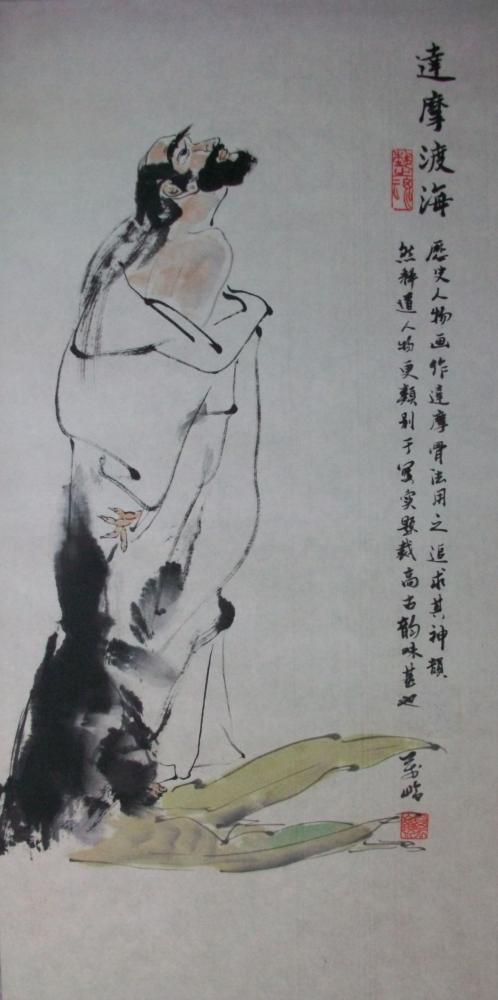 達摩渡海
歷史人物画作達摩骨法用之追求其神韻
然釋道人物更類别于写实题裁高古韵味甚也